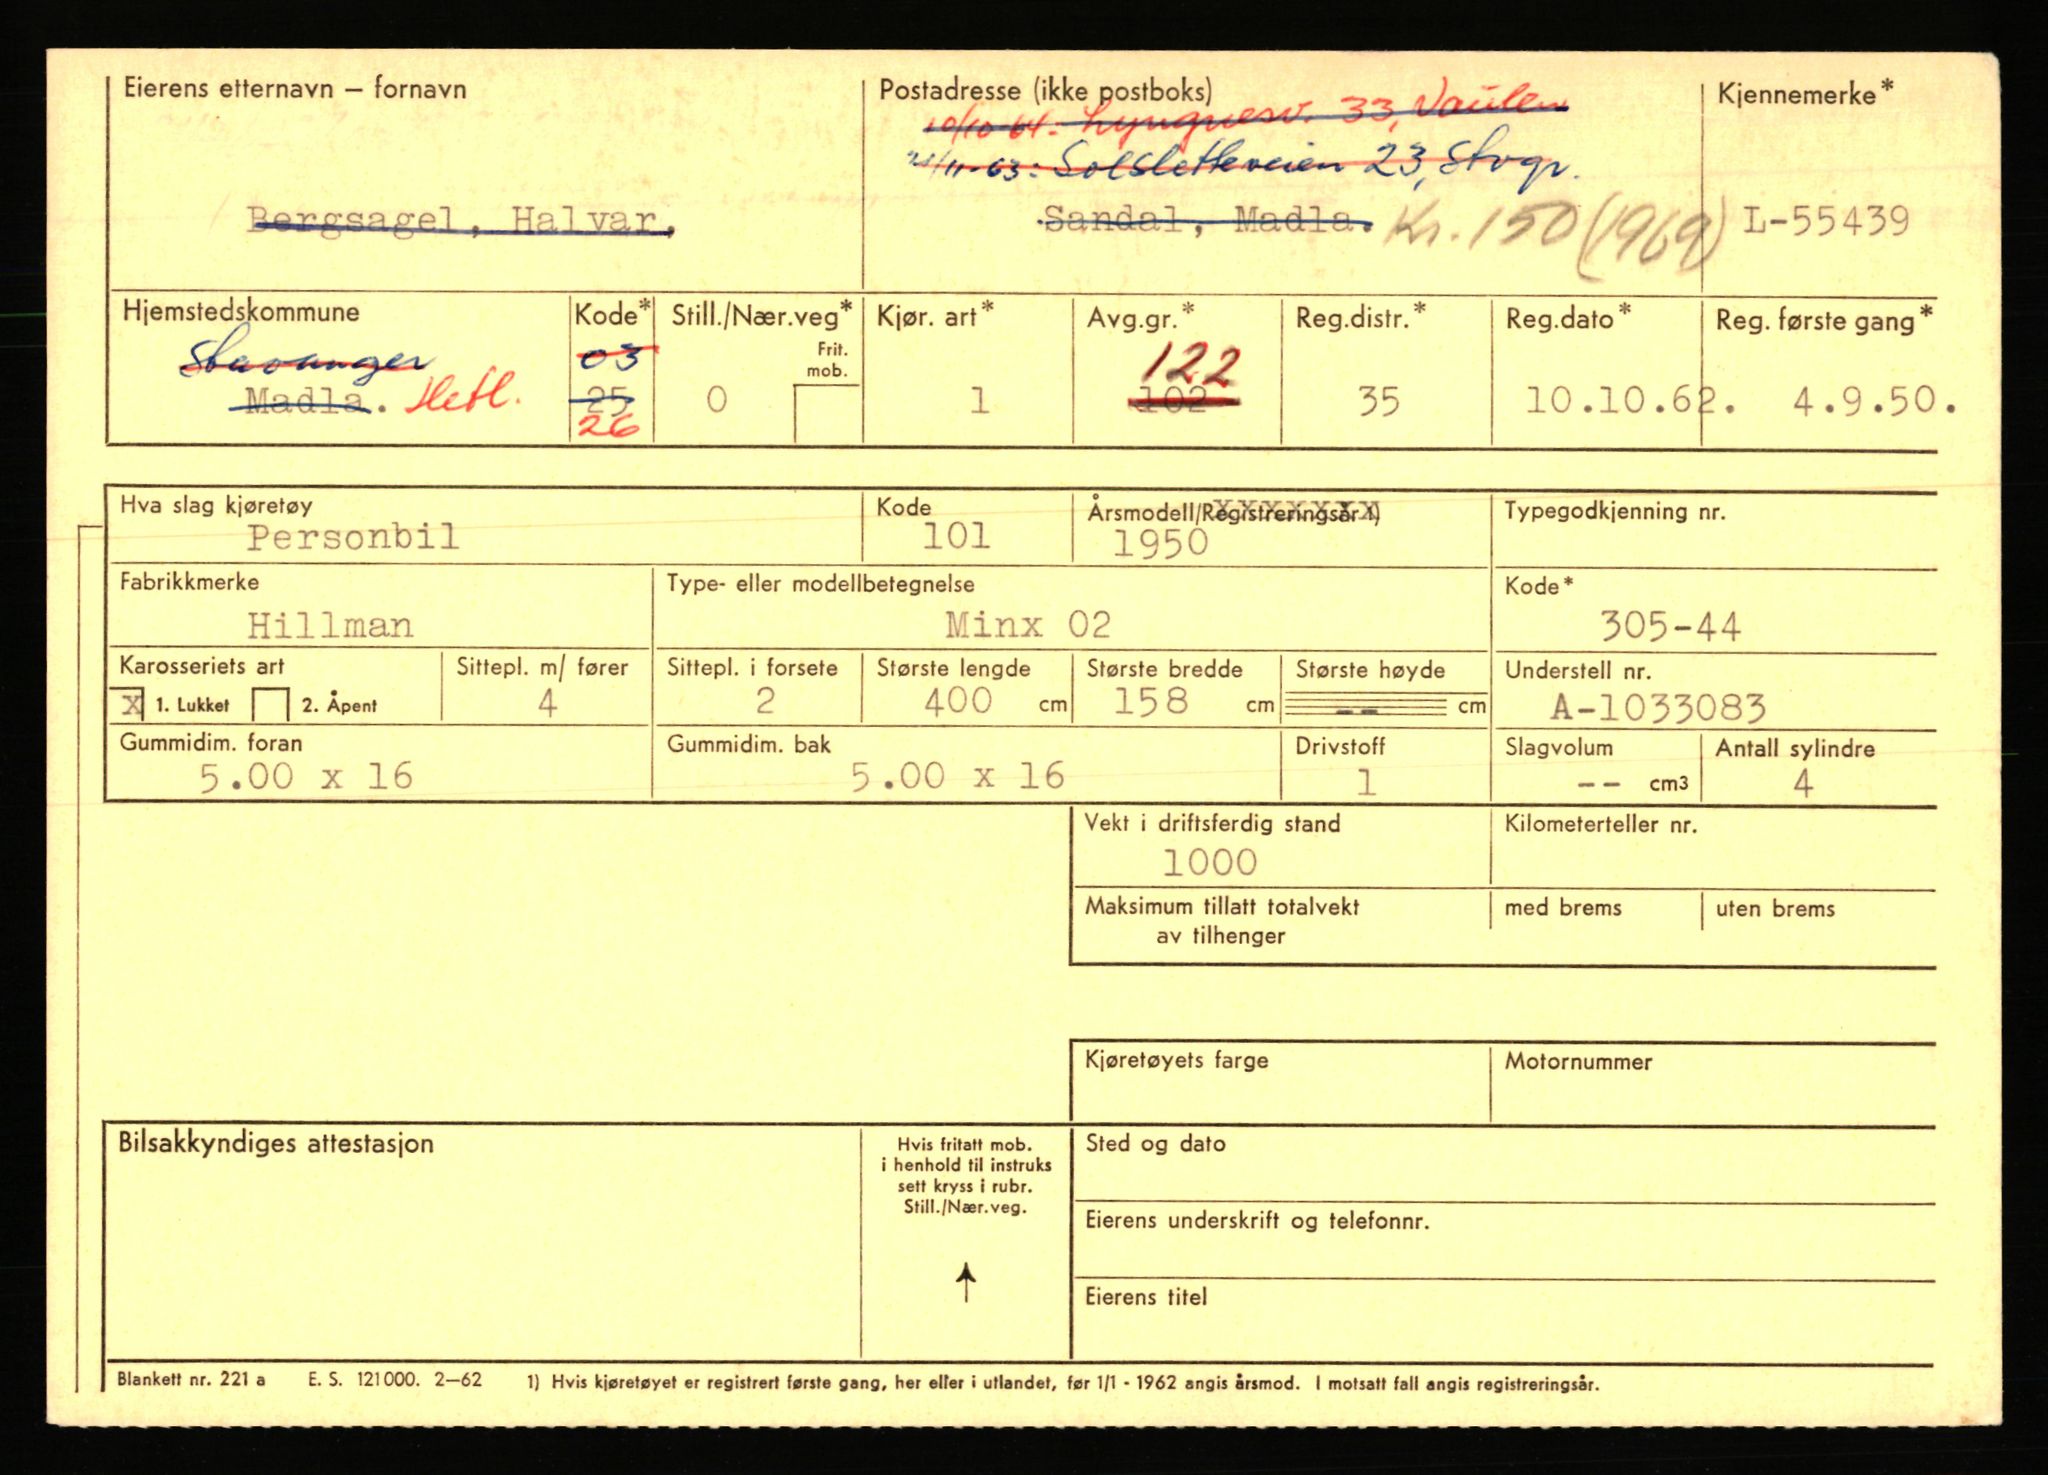 Eierens etternavn – fornavn
Postadresse (ikke postboks)
Kjennemerke*
10/10-64: Lyngnesv. 33, Vaulen
/11-63: Solsletteveien 23, Stvgr.
Bergsagel, Halvar,
Sandal, Madla.
Kr. 150 (1969)
L-55439
Hjemstedskommune
Kode*
Still./Nær.veg*
Kjør. art*
Avg.gr.*
Reg.distr.*
Reg.dato*
Reg. første gang*
Stavanger
03
Frit. mob.
122
Madla. Hetl.
25
0
1
102
35
10.10.62.
4.9.50.
26
Hva slag kjøretøy
Kode
Årsmodell/Registreringsår 1)
Typegodkjenning nr.
Personbil
101
1950
Fabrikkmerke
Type- eller modellbetegnelse
Kode*
Hillman
Minx 02
305-44
Karosseriets art
Sittepl. m/ fører
Sittepl. i forsete
Største lengde
Største bredde
Største høyde
Understell nr.
x 1. Lukket
2. Åpent
4
2
400 cm
158 cm
-- cm
A-1033083
Gummidim. foran
Gummidim. bak
Drivstoff
Slagvolum
Antall sylindre
5.00 x 16
5.00 x 16
1
-- cm3
4
Vekt i driftsferdig stand
Kilometerteller nr.
1000
Maksimum tillatt totalvekt
av tilhenger
med brems
uten brems
Kjøretøyets farge
Motornummer
Bilsakkyndiges attestasjon
Hvis fritatt mob.
i henhold til instruks
sett kryss i rubr.
Still./Nær.veg.
Sted og dato
Eierens underskrift og telefonnr.
Eierens titel
Blankett nr. 221 a E. S. 121000. 2–62 1) Hvis kjøretøyet er registrert første gang, her eller i utlandet, før 1/1 - 1962 angis årsmod. I motsatt fall angis registreringsår.